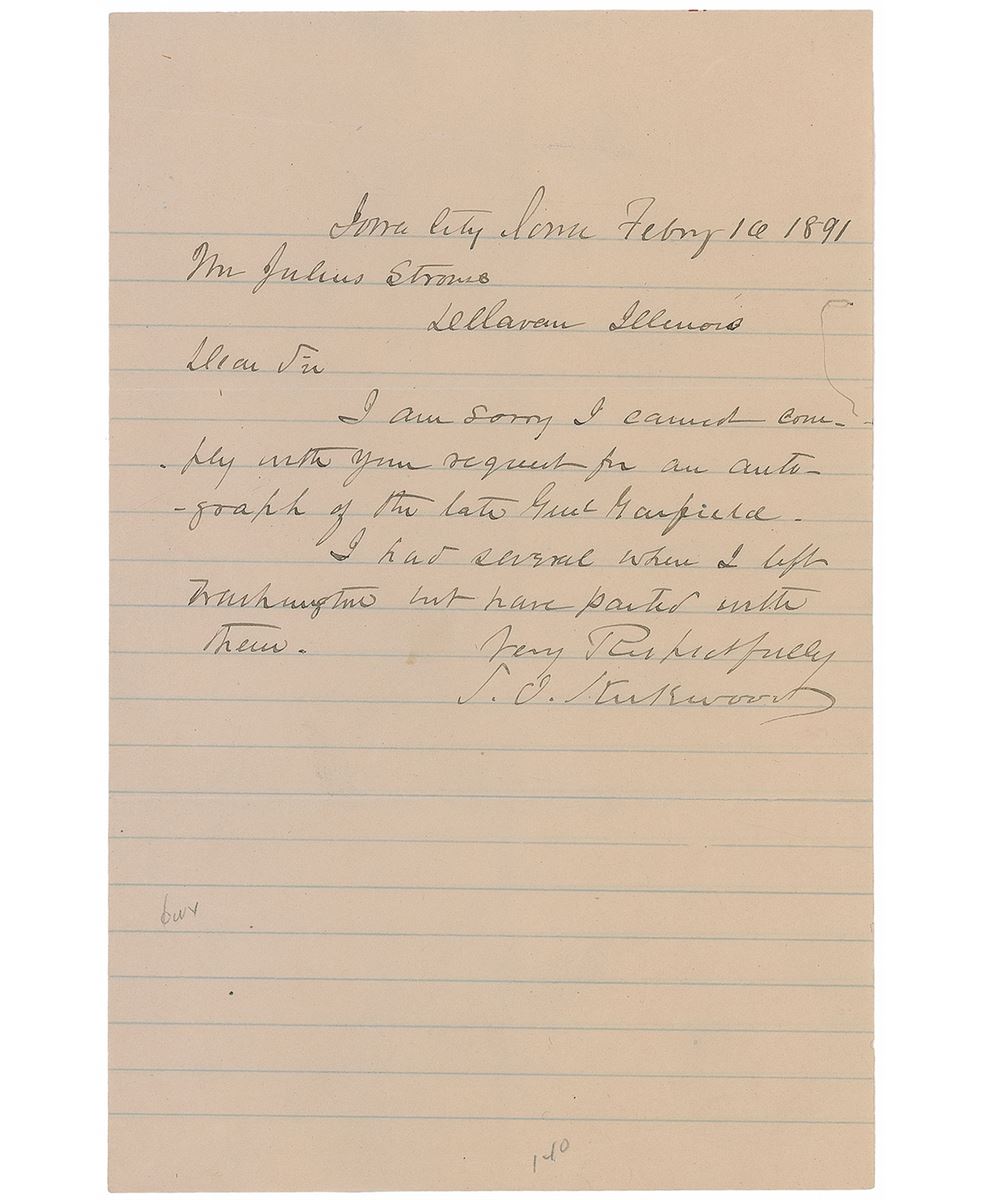 Iowa City Iowa Febry 16 1891
Mr Julius Strouse
Dellavan Illinois
Dear Sir
I am sorry I cannot com-
ply with your request for an auto-
-graph of the late Genl Garfield.
I had several when I left
Washington but have parted with
them. Very Respectfully
S. J. Kirkwood